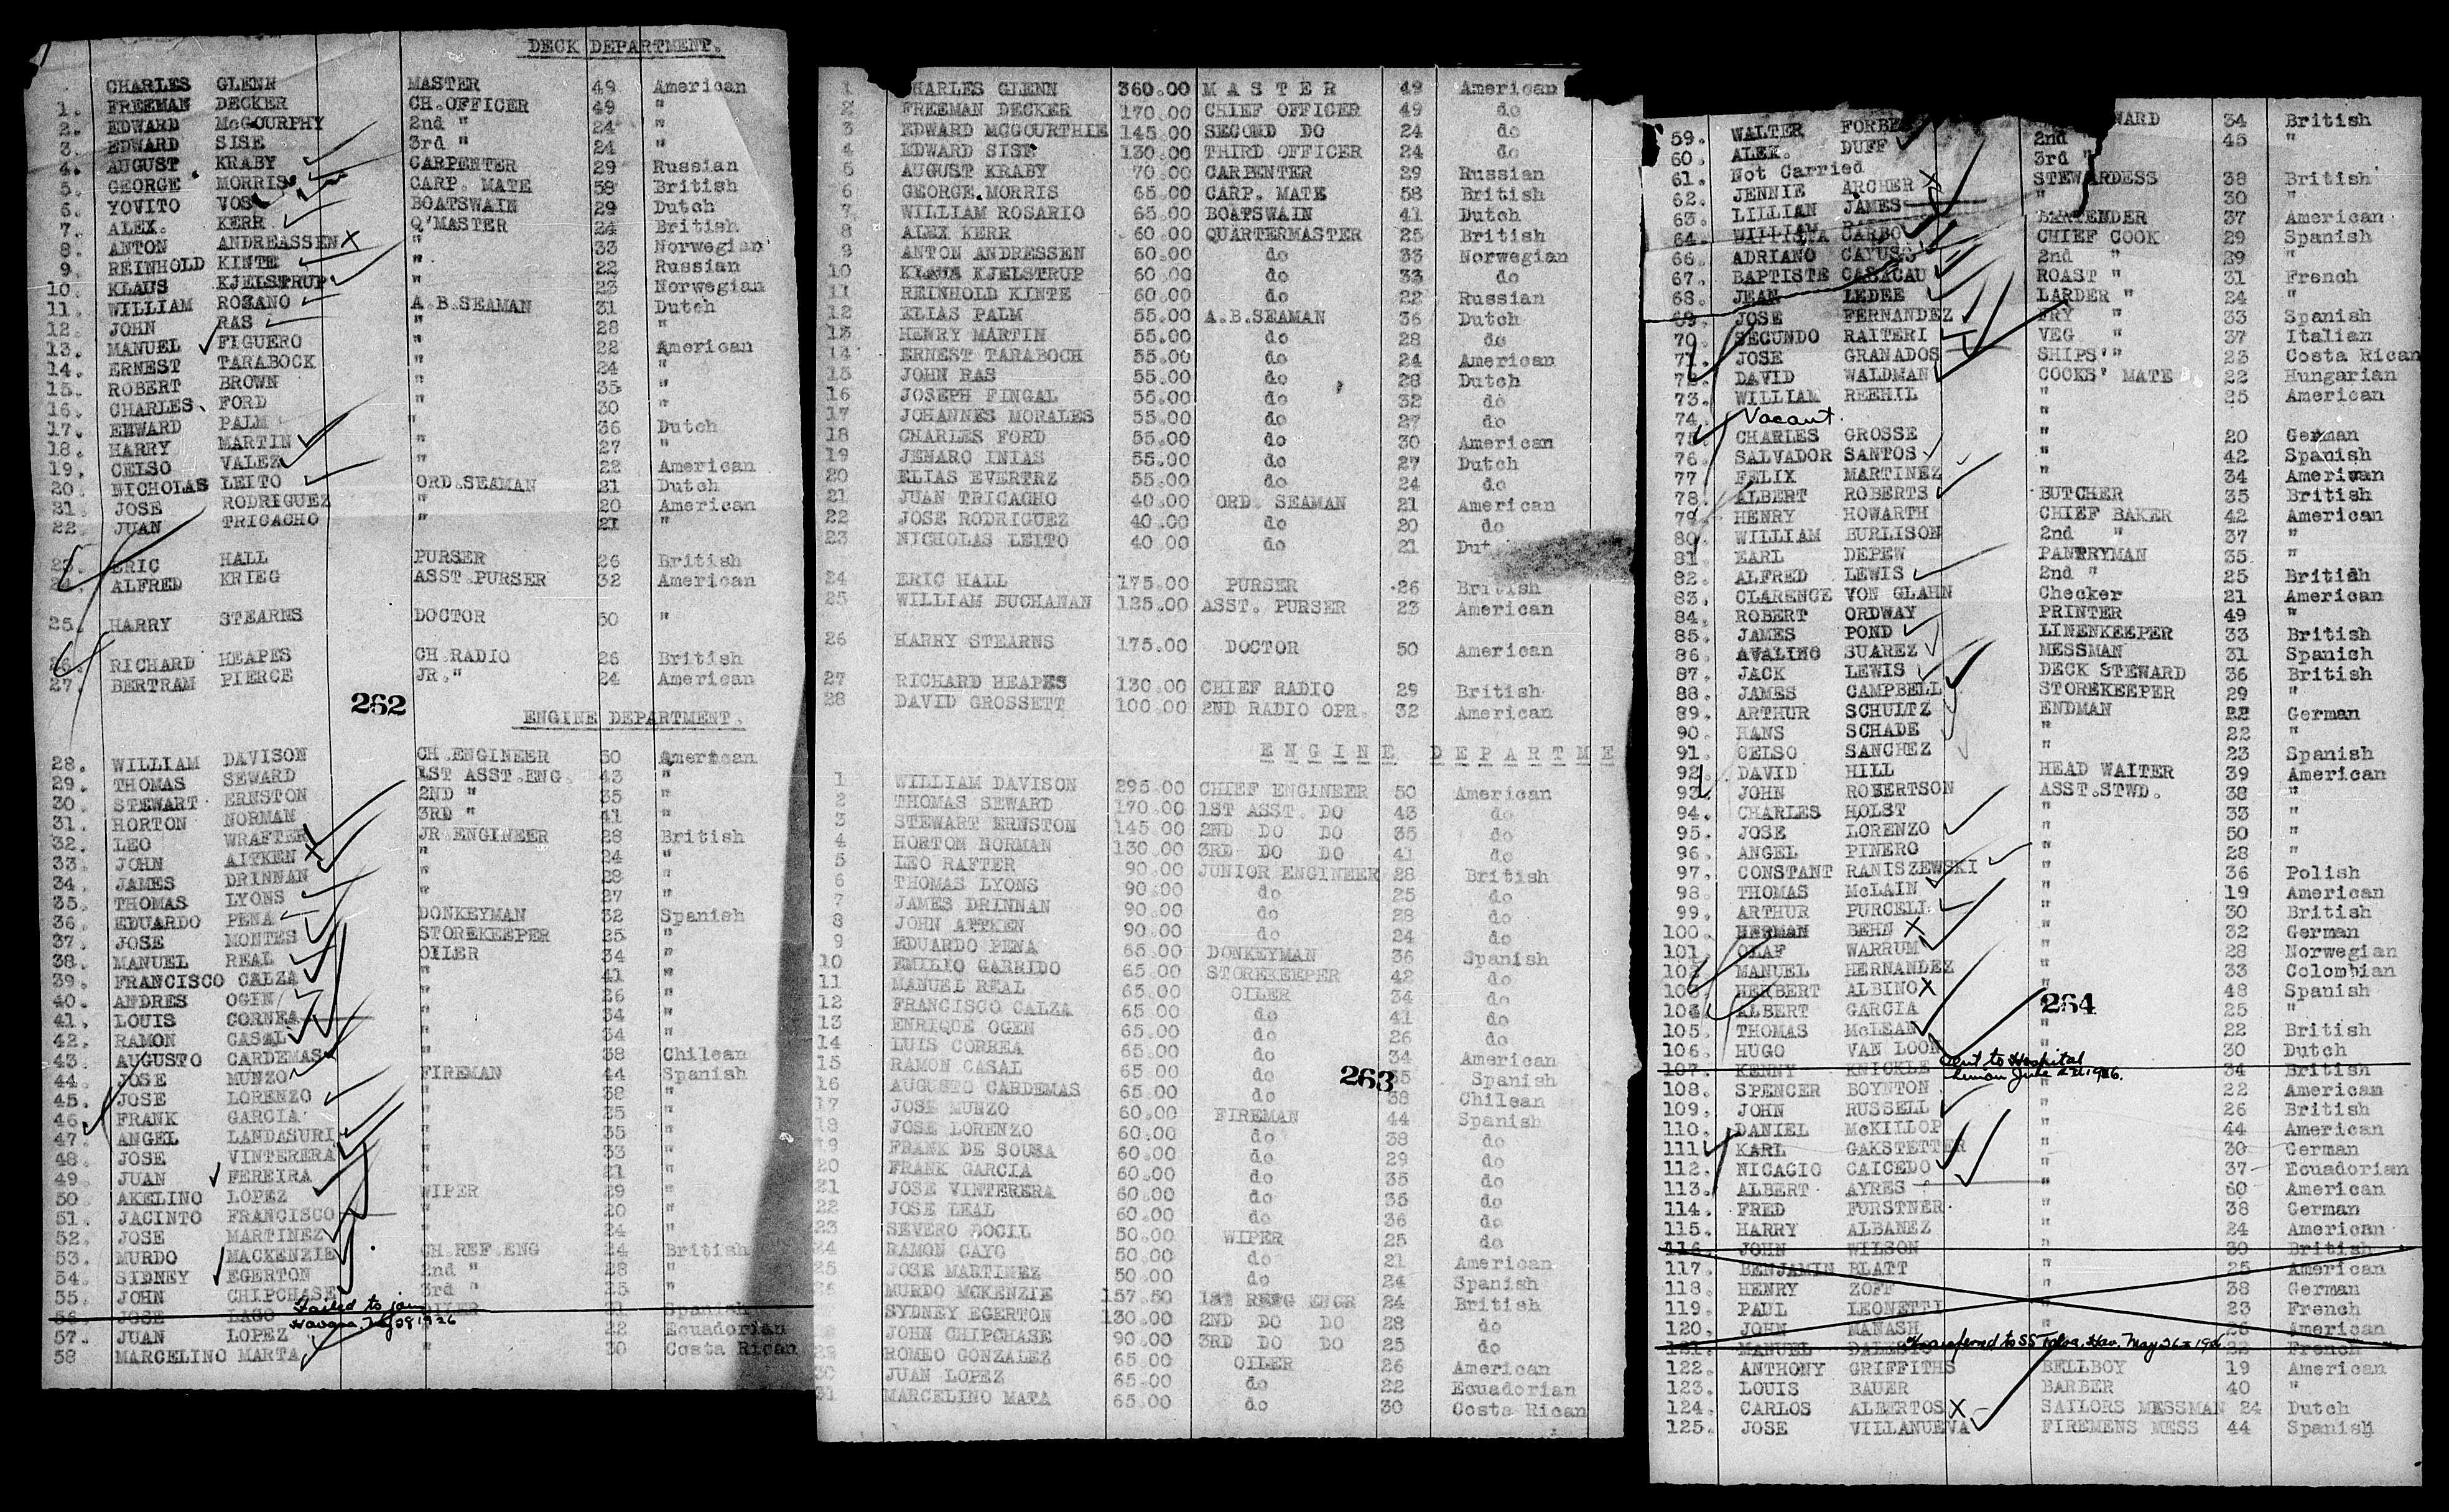 DECK DEPARTMENT.
CHARLES GLENN MASTER 49 American
1. FREEMAN DECKER CH.OFFICER 49 "
2. EDWARD McGOURPHY 2nd " 24 "
3. EDWARD SISE 3rd " 24 "
4. AUGUST KRABY CARPENTER 29 Russian
5. GEORGE MORRIS CARP. MATE 58 British
6. YOVITO VOS BOATSWAIN 29 Dutch
7. ALEX. KERR Q'MASTER 24 British
8. ANTON ANDREASSEN " 33 Norwegian
9. REINHOLD KINTE " 22 Russian
10. KLAUS KJELSTRUP " 23 Norwegian
11. WILLIAM ROZANO A.B.SEAMAN 31 Dutch
12. JOHN RAS " 28 "
13. MANUEL FIGUERO " 22 American
14. ERNEST TARABOCK " 24 "
15. ROBERT BROWN " 35 "
16. CHARLES FORD " 30 "
17. EDWARD PALM " 36 Dutch
18. HARRY MARTIN " 27 "
19. CELSO VALEZ " 22 American
20. NICHOLAS LEITO ORD.SEAMAN 21 Dutch
21. JOSE RODRIGUEZ " 20 American
22. JUAN TRICACHO " 21 "
23. ERIC HALL PURSER 26 British
24. ALFRED KRIEG ASST.PURSER 32 American
25. HARRY STEARNS DOCTOR 50 "
26. RICHARD HEAPES CH.RADIO 26 British
27. BERTRAM PIERCE JR. " 24 American
262
ENGINE DEPARTMENT.
28. WILLIAM DAVISON CH.ENGINEER 50 American
29. THOMAS SEWARD 1ST ASST.ENG. 43 "
30. STEWART ERNSTON 2ND " 35 "
31. HORTON NORMAN 3RD " 41 "
32. LEO WRAFTER JR ENGINEER 28 British
33. JOHN AITKEN " 24 "
34. JAMES DRINNAN " 28 "
35. THOMAS LYONS " 27 "
36. EDUARDO PENA DONKEYMAN 32 Spanish
37. JOSE MONTES STOREKEEPER 25 "
38. MANUEL REAL OILER 34 "
39. FRANCISCO CALZA " 41 "
40. ANDRES OGIN " 26 "
41. LOUIS CORNEA " 34 "
42. RAMON CASAL " 34 "
43. AUGUSTO CARDEMAS " 38 Chilean
44. JOSE MUNZO FIREMAN 44 Spanish
45. JOSE LORENZO " 38 "
46. FRANK GARCIA " 35 "
47. ANGEL LANDASURI " 35 "
48. JOSE VINTERERA " 33 "
49. JUAN FEREIRA " 21 "
50. AKELINO LOPEZ WIPER 29 "
51. JACINTO FRANCISCO " 20 "
52. JOSE MARTINEZ " 24 "
53. MURDO MACKENZIE CH.REF.ENG 24 British
54. SIDNEY EGERTON 2nd " 28 "
55. JOHN CHIPCHASE 3rd " 25 "
56. JOSE LAGO Failed to join OILER 31 Spanish
Havana, 1926
57. JUAN LOPEZ " 22 Ecuadorian
58 MARCELINO MARTA " 30 Costa Rican
1 CHARLES GLENN 360.00 MASTER 49 American
2 FREEMAN DECKER 170.00 CHIEF OFFICER 49 do
3 EDWARD MCGOURTHIE 145.00 SECOND DO 24 do
4 EDWARD SISE 130.00 THIRD OFFICER 24 do
5 AUGUST KRABY 70.00 CARPENTER 29 Russian
6 GEORGE.MORRIS 65.00 CARP. MATE 58 British
7 WILLIAM ROSARIO 65.00 BOATSWAIN 41 Dutch
8 ALEX KERR 60.00 QUARTERMASTER 25 British
9 ANTON ANDRESSEN 60.00 do 33 Norwegian
10 KLAUS KJELSTRUP 60.00 do 33 do
11 REINHOLD KINTE 60.00 do 22 Russian
12 ELIAS PALM 55.00 A.B.SEAMAN 36 Dutch
13 HENRY MARTIN 55.00 do 28 do
14 ERNEST TARABOCH 55.00 do 24 American
15 JOHN RAS 55.00 do 28 Dutch
16 JOSEPH FINGAL 55.00 do 32 do
17 JOHANNES MORALES 55.00 do 27 do
18 CHARLES FORD 55.00 do 30 American
19 JENARO INIAS 55.00 do 27 Dutch
20 ELIAS EVERTRZ 55.00 do 24 do
21 JUAN TRICACHO 40.00 ORD. SEAMAN 21 American
22 JOSE RODRIGUEZ 40.00 do 20 do
23 NICHOLAS LEITO 40.00 do 21 Dut
24 ERIC HALL 175.00 PURSER 26 British
25 WILLIAM BUCHANAN 125.00 ASST. PURSER 23 American
26 HARRY STEARNS 175.00 DOCTOR 50 American
27 RICHARD HEAPES 130.00 CHIEF RADIO 29 British
28 DAVID GROSSETT 100.00 2ND RADIO OPR. 32 American
ENGINE DEPARTME
1 WILLIAM DAVISON 295.00 CHIEF ENGINEER 50 American
2 THOMAS SEWARD 170.00 1ST ASST. DO 43 do
3 STEWART ERNSTON 145.00 2ND DO DO 35 do
4 HORTON NORMAN 130.00 3RD DO DO 41 do
5 LEO RAFTER 90.00 JUNIOR ENGINEER 28 British
6 THOMAS LYONS 90.00 do 25 do
7 JAMES DRINNAN 90.00 do 28 do
8 JOHN ATTKEN 90.00 do 24 do
9 EDUARDO PENA 65.00 DONKEYMAN 36 Spanish
10 EMILIO GARRIDO 65.00 STOREKEEPER 42 do
11 MANUEL REAL 65.00 OILER 34 do
12 FRANCISCO CALZA 65.00 do 41 do
13 ENRIQUE OGEN 65.00 do 26 do
14 LUIS CORREA 65.00 do 34 American
15 RAMON CASAL 65.00 do 35 Spanish
263
16 AUGUSTO CARDEMAS 65.00 do 38 Chilean
17 JOSE MUNZO 60.00 FIREMAN 44 Spanish
18 JOSE LORENZO 60.00 do 38 do
19 FRANK DE SOUSA 60.00 do 29 do
20 FRANK GARCIA 60.00 do 35 do
21 JOSE VINTERERA 60.00 do 35 do
22 JOSE LEAL 60.00 do 36 do
23 SEVERO DOCIL 50.00 WIPER 25 do
24 RAMON CAYO 50.00 do 21 American
25 JOSE MARTINEZ 50.00 do 24 Spanish
26 MURDO MCKENZIE 157.50 1ST REFG ENGR 24 British
SYDNEY EGERTON 130.00 2ND DO DO 28 do
JOHN CHIPCHASE 90.00 3RD DO DO 25 do
29 ROMEO GONZALEZ 65.00 OILER 26 American
30 JUAN LOPEZ 65.00 do 22 Ecuadorian
31 MARCELINO MATA 65.00 do 30 Costa Rican
59. WALTER FORBE WARD 34 British
60. ALEX. DUFF 2nd 45 "
61. Not Carried 3rd "
62. JENNIE ARCHER STEWARDESS 38 British
63. LILLIAN JAMES " 30 "
64. CARBO BARTENDER 37 American
66. ADRIANO CAYUSO CHIEF COOK 29 Spanish
67. BAPTISTE CASACAU 2nd " 29 "
68. JEAN LEDEE ROAST " 31 French
69. JOSE FERNANDEZ LARDER " 24 "
70. SECUNDO RAITERI FRY " 33 Spanish
71. JOSE GRANADOS VEG " 37 Italian
72. DAVID WALDMAN SHIPS' " 23 Costa Rican
73. WILLIAM REEHIL COOKS' MATE 22 Hungarian
74. Vacant. " 25 American
75. CHARLES GROSSE " 20 German
76. SALVADOR SANTOS " 42 Spanish
77. FELIX MARTINEZ " 34 American
78. ALBERT ROBERTS BUTCHER 35 British
79. HENRY HOWARTH CHIEF BAKER 42 American
80. WILLIAM BURLISON 2nd " 37 "
81. EARL DEPEW PANTRYMAN 35 "
82. ALFRED LEWIS 2nd " 25 British
83. CLARENCE VON GLAHN Checker 21 American
84. ROBERT ORDWAY PRINTER 49 "
85. JAMES POND LINENKEEPER 33 British
86. AVALINO SUAREZ MESSMAN 31 Spanish
87. JACK LEWIS DECK STEWARD 36 British
88. JAMES CAMPBELL STOREKEEPER 29 "
89. ARTHUR SCHULTZ ENDMAN 22 German
90. HANS SCHADE " 22 "
91. CELSO SANCHEZ " 23 Spanish
92. DAVID HILL HEAD WAITER 39 American
93. JOHN ROBERTSON ASST.STWD. 38 "
94. CHARLES HOLST " 33 "
95. JOSE LORENZO " 50 "
96. ANGEL PINERO " 28 "
97. CONSTANT RANISZEWSKI " 36 Polish
98. THOMAS McLAIN " 19 American
99. ARTHUR PURCELL " 30 British
100. HERMAN BEHN " 32 German
101. OLAF WARRUM " 28 Norwegian
102. MANUEL HERNANDEZ " 33 Colombian
103. HERBERT ALBINO " 48 Spanish
104. ALBERT GARCIA 264 25 "
105. THOMAS McLEAN " 22 British
106. HUGO VAN LOON " 30 Dutch
107. KENNY KNICKLE Sent to Hospital 34 British
Limon June 1926.
108. SPENCER BOYNTON " 22 American
109. JOHN RUSSELL " 26 British
110. DANIEL McKILLOP " 44 American
111. KARL GAKSTETTER " 30 German
112. NICACIO CAICEDO " 37 Ecuadorian
113. ALBERT AYRES " 60 American
114. FRED FURSTNER " 38 German
115. HARRY ALBANEZ " 24 American
116. JOHN WILSON " 30 British
117. BENJAMIN BLATT " 25 American
118. HENRY ZOFT " 38 German
119. PAUL LEONETTI " 23 French
120. JOHN MANASH " 26 American
121. MANUEL Transferred to SS Toloa, Hav. May 26 1926 22 French
122. ANTHONY GRIFFITHS BELLBOY 19 American
123. LOUIS BAUER BARBER 40 "
124. CARLOS ALBERTOS SAILORS MESSMAN 24 Dutch
125. JOSE VILLANUEVA FIREMENS MESS 44 Spanish